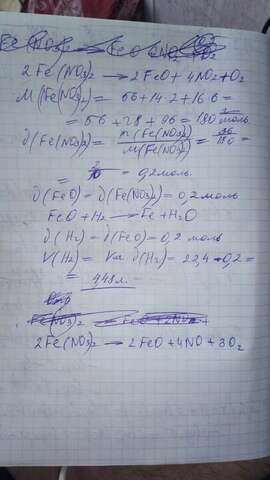 2Fe(NO3)2 → 2FeO + 4NO2 + O2
M(Fe(NO3)2) = 56 + 14·2 + 16·6 =
= 56 + 28 + 96 = 180 г/моль
ν(Fe(NO3)2) = m(Fe(NO3)2)/M(Fe(NO3)2) = 36/180 =
= 2/10 = 0,2 моль.
ν(FeO) = ν(Fe(NO3)2) = 0,2 моль
FeO + H2 → Fe + H2O
ν(H2) = ν(FeO) = 0,2 моль
V(H2) = Vм · ν(H2) = 22,4 · 0,2 =
= 4,48 л.
2Fe(NO3)2 → 2FeO + 4NO + 3O2